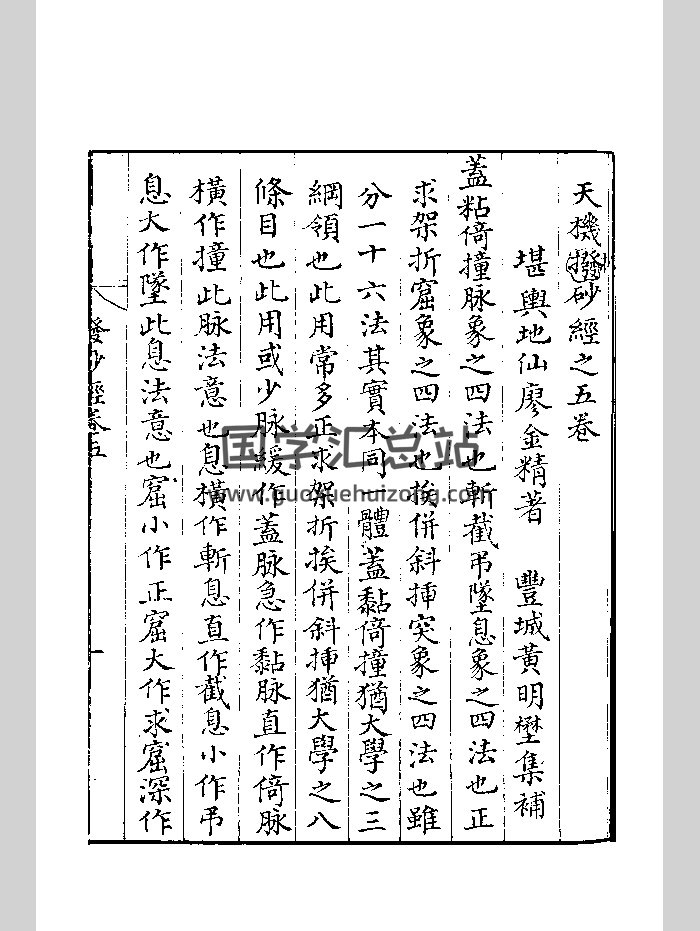 天機撥砂經之五卷
堪輿地仙廖金精著 豐城黃明壄集補
蓋粘倚撞脉象之四法也斬截弔墜息象之四法也正
求架折窟象之四法也挨併斜揷突象之四法也雖
分一十六法其實本同一體蓋黏倚撞猶大學之三
綱領也此用常多正求架折挨併斜揷猶大學之八
條目也此用或少脉緩作蓋脉急作黏脉直作倚脉
橫作撞此脉法意也息橫作斬息直作截息小作弔
息大作墜此息法意也窟小作正窟大作求窟深作
發砂經卷五
一
国学汇总站
www.guoxuehuizong.com